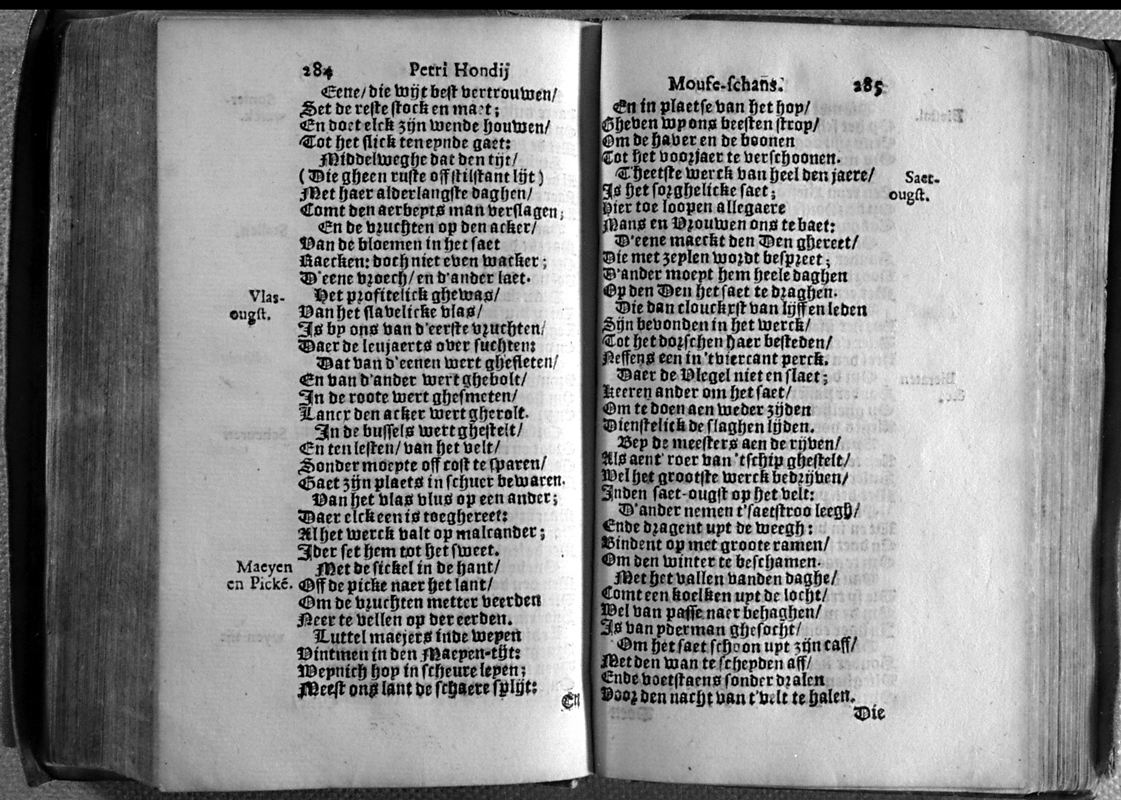 284 Petri Hondij
Eene/ die wijt best vertrouwen/
Set de reste stock en maet;
En doet elck zijn wende houwen/
Tot het stick ten eynde gaet:
Middelweghe dat den tijt/
(Die gheen ruste off stilstant lijt)
Met haer alderlangste daghen/
Comt den aerbeyts man verslagen;
En de vruchten op den acker/
Van de bloemen in het saet
Raecken: doch niet even wacker;
D'eene vroech/ en d'ander laet.
Vlas-
ougst.
Het profitelick ghewas/
Van het slavelicke vlas/
Is by ons van d'eerste vruchten/
Daer de leujaerts over suchten:
Dat van d'eenen wert ghesleten/
En van d'ander wert ghebolt/
In de roote wert ghesmeten/
Lancx den acker wert gherolt.
In de bussels wert ghestelt/
En ten lesten/ van het velt/
Sonder moeyte off cost te sparen/
Gaet zijn plaets in schuer bewaren.
Van het vlas vlus op een ander;
Daer elck een is toeghereet:
Al het werck valt op malcander;
Ider set hem tot het sweet.
Maeyen
en Pickē.
Met de sickel in de hant/
Off de picke naer het lant/
Om de vruchten metter veerden
Neer te vellen op der eerden.
Luttel maejers inde weyen
Vintmen in den Maeyen-tijt:
Weynich hop in scheure leyen;
Meest ons lant de schaere splijt:
En
Mouse-schans. 285
En in plaetse van het hop/
Gheven wy ons beesten strop/
Om de haver en de boonen
Tot het voorjaer te verschoonen.
Saet-
ougst.
T'heetste werck van heel den jaere/
Is het sorghelicke saet;
Hier toe loopen allegaere
Mans en Vrouwen ons te baet:
D'eene maeckt den Den ghereet/
Die met zeylen wordt bespreet;
D'ander moeyt hem heele daghen
Op den Den het saet te draghen.
Die dan clouckrst van lijff en leden
Sijn bevonden in het werck/
Tot het dorschen haer besteden/
Neffens een in 'tviercant perck.
Daer de Vlegel niet en slaet;
Keeren ander om het saet/
Om te doen aen weder zijden
Dienstelick de slaghen lijden.
Bey de meesters aen de rijven/
Als aent' roer van 'tschip ghestelt/
Wel het grootste werck bedrijven/
Inden saet-ougst op het velt:
D'ander nemen t'saetstroo leegh/
Ende dragent uyt de weegh:
Bindent op met groote ramen/
Om den winter te beschamen.
Met het vallen vanden daghe/
Comt een koelken uyt de locht/
Wel van passe naer behaghen/
Is van yderman ghesocht/
Om het saet schoon uyt zijn caff/
Met den wan te scheyden aff/
Ende voetstaens sonder dralen
Voor den nacht van t'velt te halen.
Die